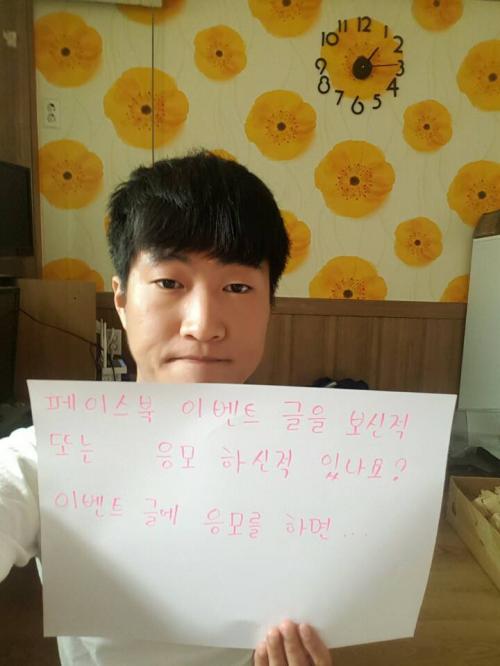 12
1
2
3
4
5
6
7
8
9
10
11
페이스북 이벤트 글을 보신적
또는 응모 하신적 있나요?
이벤트 글에 응모를 하면...